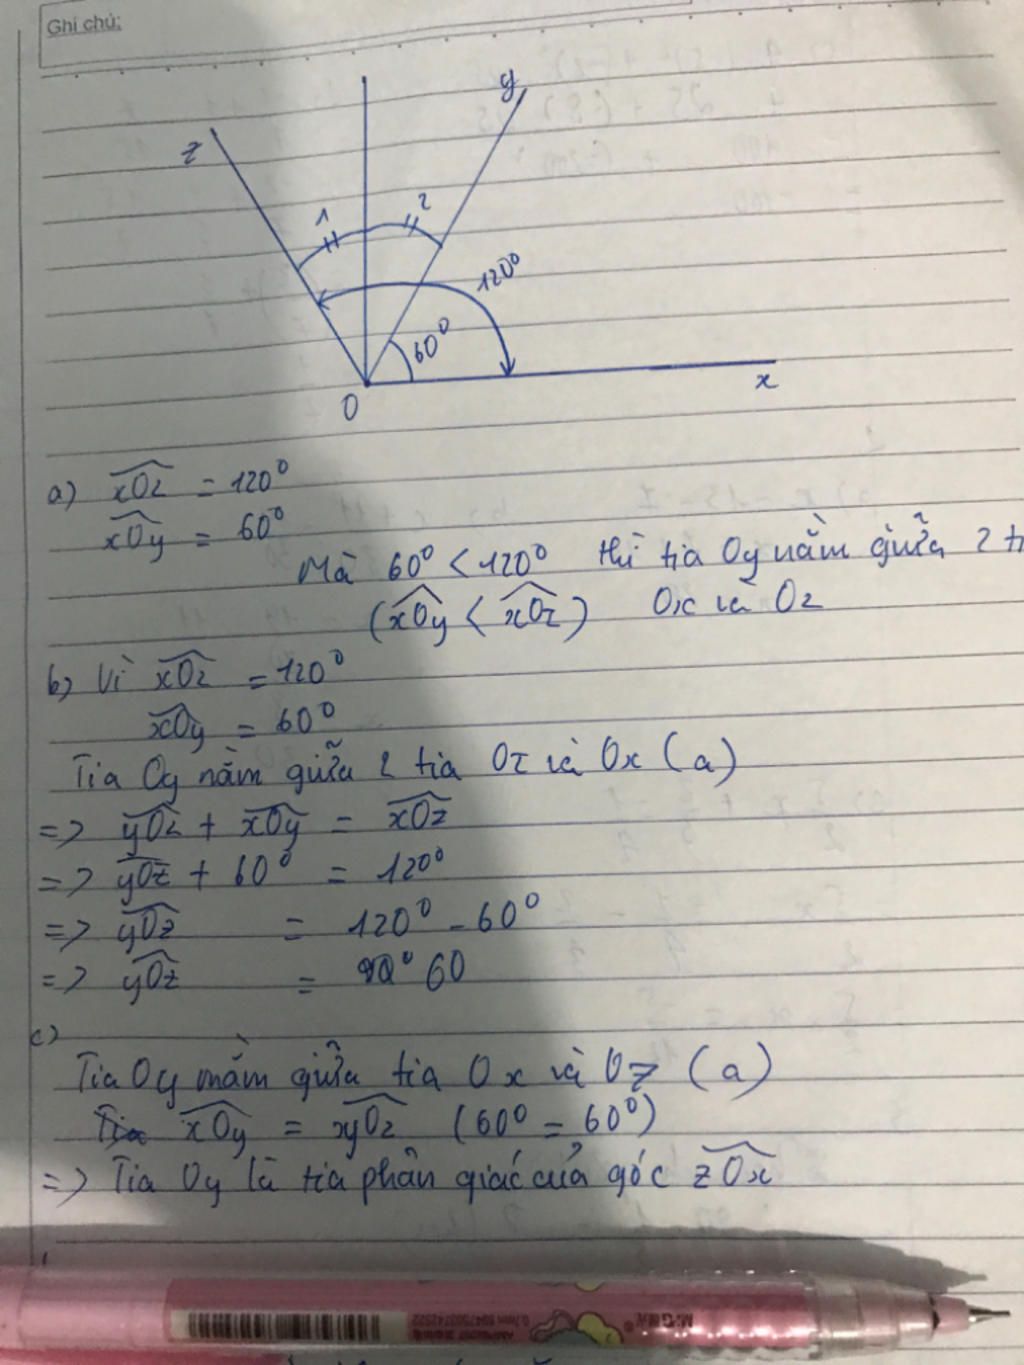 Ghi chú:
z
y
1
2
120⁰
60⁰
O
x
a) xOz = 120⁰
xOy = 60⁰
Mà 60⁰ < 120⁰ thì tia Oy nằm giữa 2
(xOy < xOz) Ox và Oz
b) Vì xOz = 120⁰
xOy = 60⁰
Tia Oy nằm giữa 2 tia Oz và Ox (a)
=> yOz + xOy = xOz
=> yOz + 60⁰ = 120⁰
=> yOz = 120⁰ - 60⁰
=> yOz = 60
c)
Tia Oy nằm giữa tia Ox và Oz (a)
xOy = yOz (60⁰ = 60⁰)
=> Tia Oy là tia phân giác của góc zOx
M&G
0.7mm